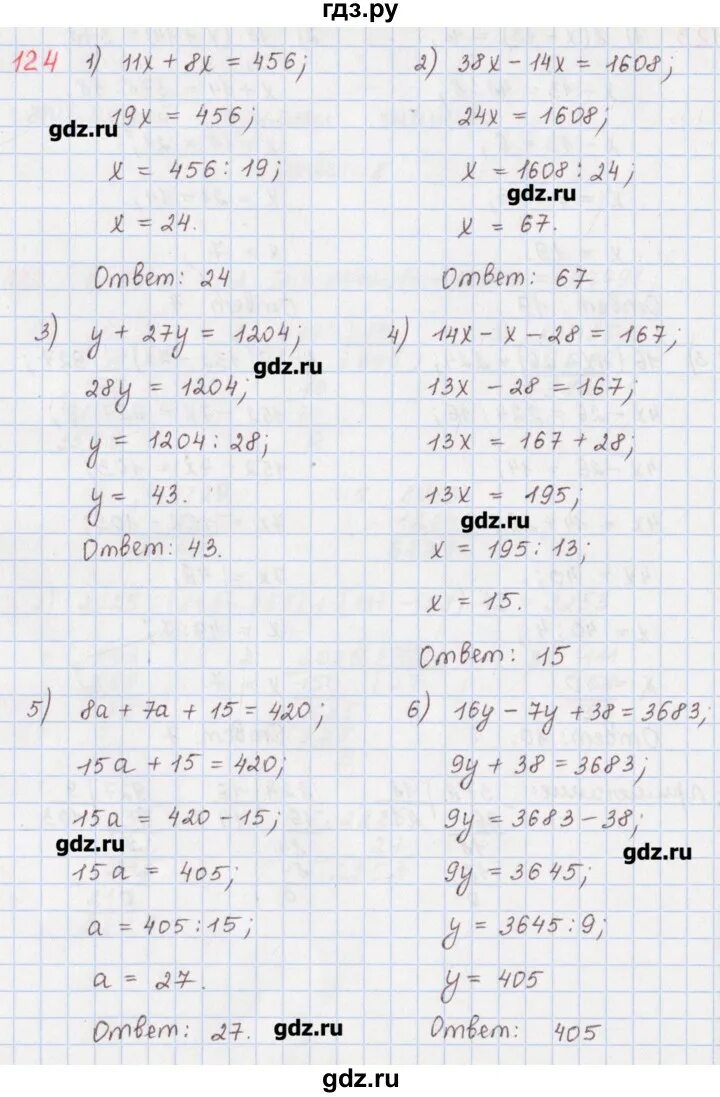 гдз.ру
124 1) 11x + 8x = 456;
19x = 456;
x = 456 : 19;
x = 24.
Ответ: 24
2) 38x - 14x = 1608;
24x = 1608;
x = 1608 : 24;
x = 67.
Ответ: 67
gdz.ru
gdz.ru
3) y + 27y = 1204;
28y = 1204;
y = 1204 : 28;
y = 43.
Ответ: 43.
gdz.ru
4) 14x - x - 28 = 167;
13x - 28 = 167;
13x = 167 + 28;
13x = 195;
x = 195 : 13;
x = 15.
Ответ: 15
gdz.ru
5) 8a + 7a + 15 = 420;
15a + 15 = 420;
15a = 420 - 15;
15a = 405;
a = 405 : 15;
a = 27.
Ответ: 27.
gdz.ru
gdz.ru
6) 16y - 7y + 38 = 3683;
9y + 38 = 3683;
9y = 3683 - 38;
9y = 3645;
y = 3645 : 9;
y = 405
Ответ: 405
gdz.ru
gdz.ru